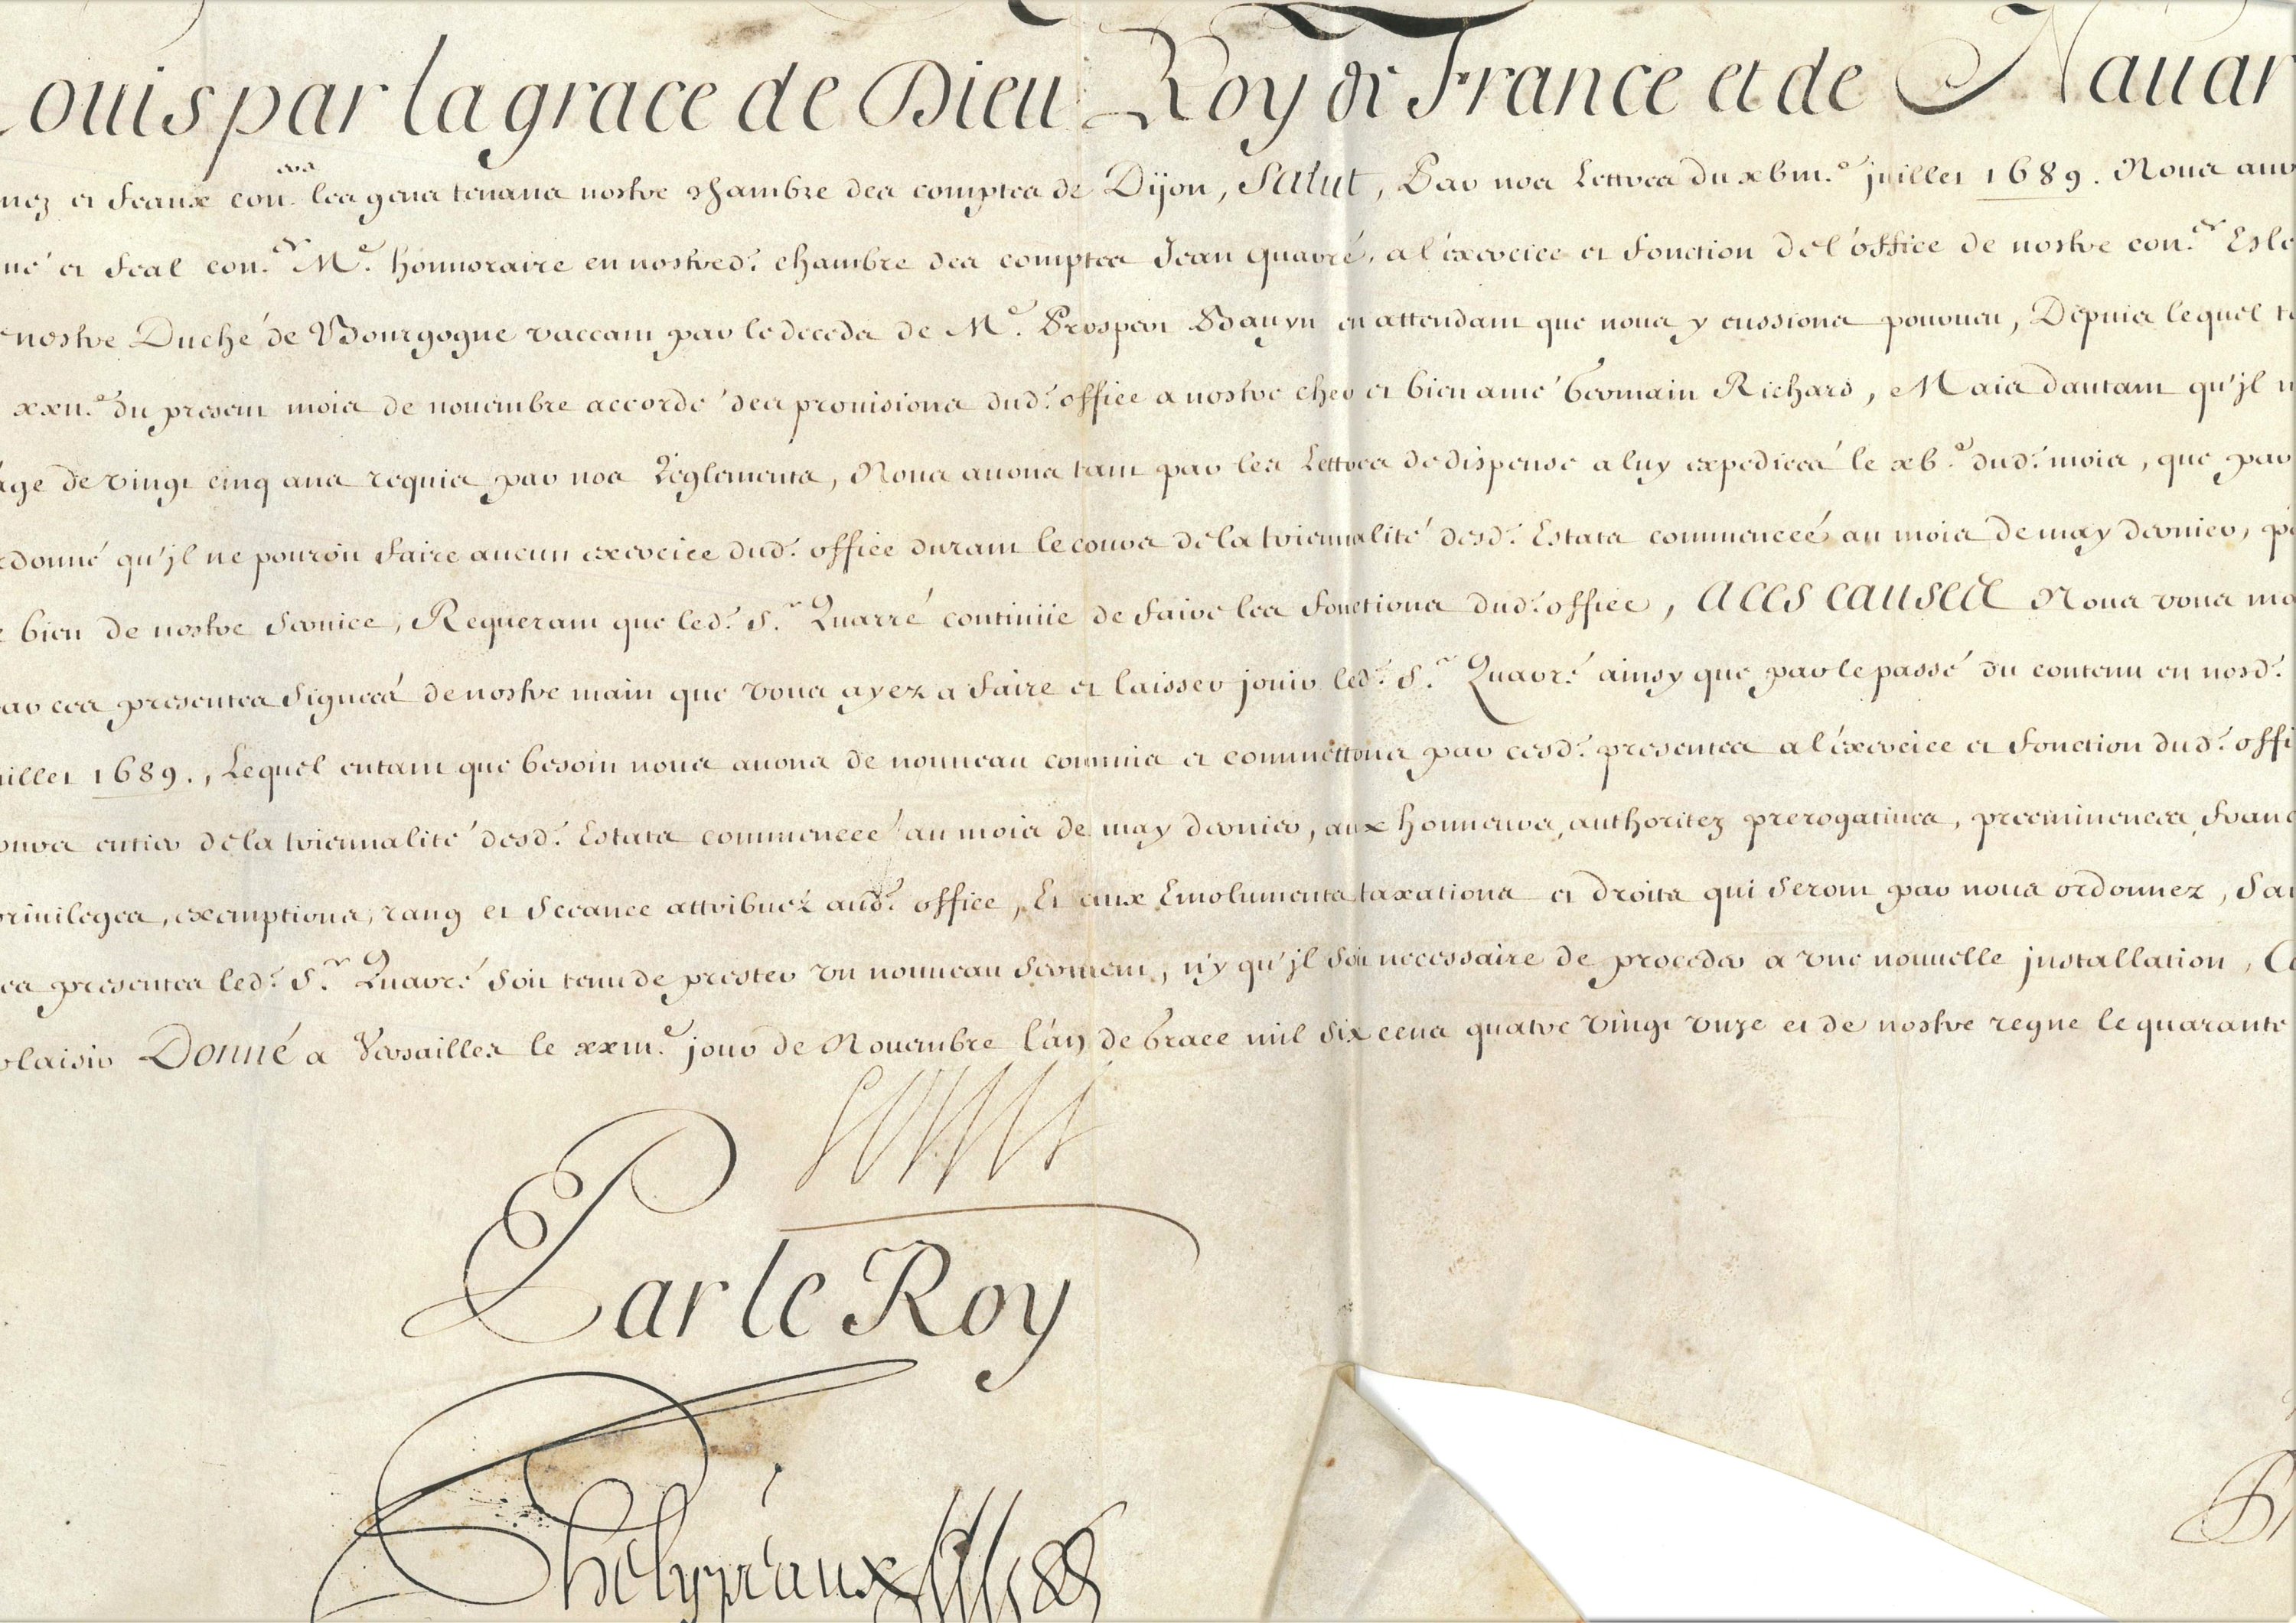 Louis par la grace de Dieu Roy de France et de Nauar
mez et feaux con.ers les gens tenans nostre chambre des comptes de Dijon, Salut, Par nos Lettres du xbiii.e juillet 1689. Nous auo
mé et feal con.er M.e honnoraire en nostred.' chambre des comptes Jean Quarré, a l'exercice et fonction de l'office de nostre con.er Esle
nostre Duché de Bourgogne vaccant par le deceds de M.e Prosper Bauyn en attendant que nous y eussions pourueu, Depuis lequel te
xxii.e du present mois de nouembre accordé des prouisions dud.' office a nostre cher et bien amé Germain Richard, Mais dautant qu'jl n
age de vingt cinq ans requis par nos Reglements, Nous auons tant par les Lettres de dispense a luy expediées le xb.e dud.' mois, que par
rdonné qu'jl ne pouroit faire aucun exercice dud.' office durant le cours de la triennalité desd.' Estats commencée au mois de may dernier, pa
e bien de nostre seruice, Requerant que led.' S.r Quarré continüe de faire les fonctions dud.' office, A CES CAUSES Nous vous ma
par ces presentes signées de nostre main que vous ayez a faire et laisser jouir led.' S.r Quarré ainsy que par le passé du contenu en nosd.'
uillet 1689., Lequel entant que besoin nous auons de nouueau commis et commettons par cesd.' presentes a l'exercice et fonction dud.' offi
ours entier de la triennalité desd.' Estats commencée au mois de may dernier, aux honneurs, authoritez prerogatiues, preeminences, franc
priuileges, exemptions, rang et seeance attribuez aud.' office, Et aux Emoluments taxations et droits qui seront par nous ordonnez, san
ces presentes led.' S.r Quarré soit tenu de prester vn nouueau serment, n'y qu'jl soit necessaire de proceder a vne nouuelle jnstallation, Ca
plaisir Donné a Versailles le xxiii.e jour de Nouembre l'an de Grace mil six cens quatre vingt vnze et de nostre regne le quarante
Louis
Par le Roy
Phélypeaux